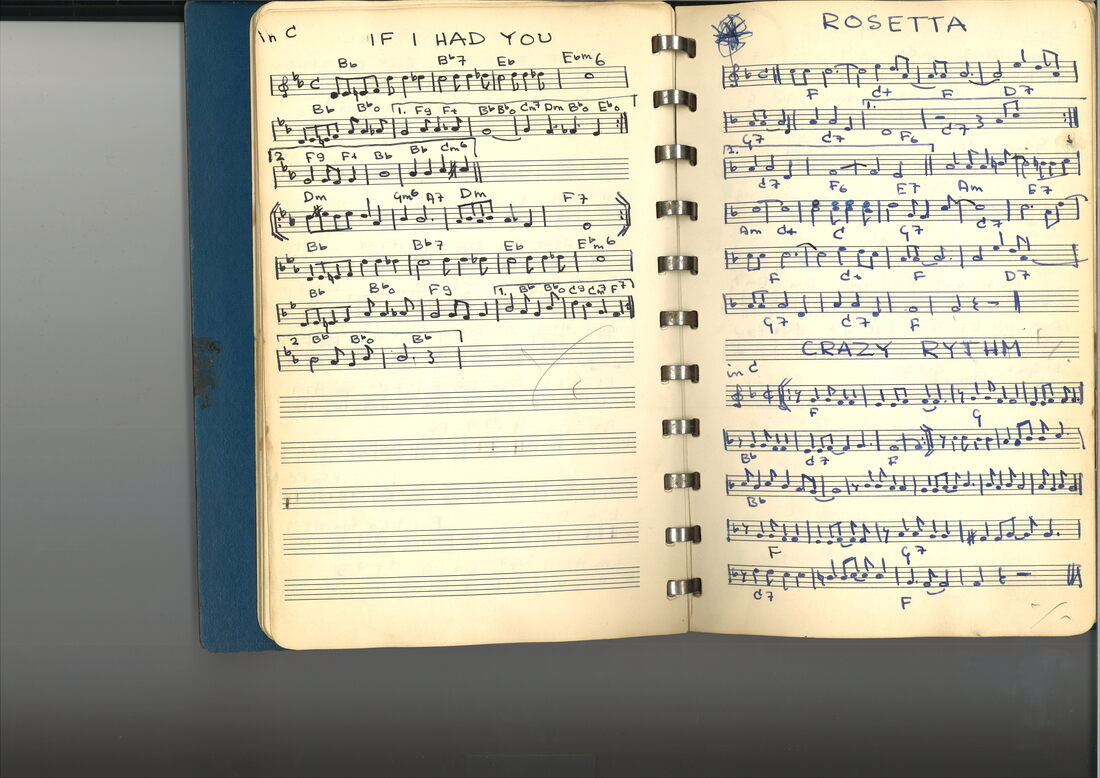 In C
IF I HAD YOU
Bb Bb7 Eb Ebm6
Bb Bbo 1. F9 F+ Bb Bbo Cm7 Dm Bbo Ebo
2. F9 F+ Bb Bb Cm6
Dm Gm6 A7 Dm F7
Bb Bb7 Eb Ebm6
Bb Bbo F9 1. Bb Bbo C9 Cm7 F7
2 Bb Bbo Bb
ROSETTA
F C+ F D7
G7 C7 1. F6 C7
2. C7 F6 E7 Am E7
Am C+ C G7 C7
F C+ F D7
G7 C7 F
CRAZY RYTHM
in C
F G
Bb C7 F
Bb
F G7
C7 F